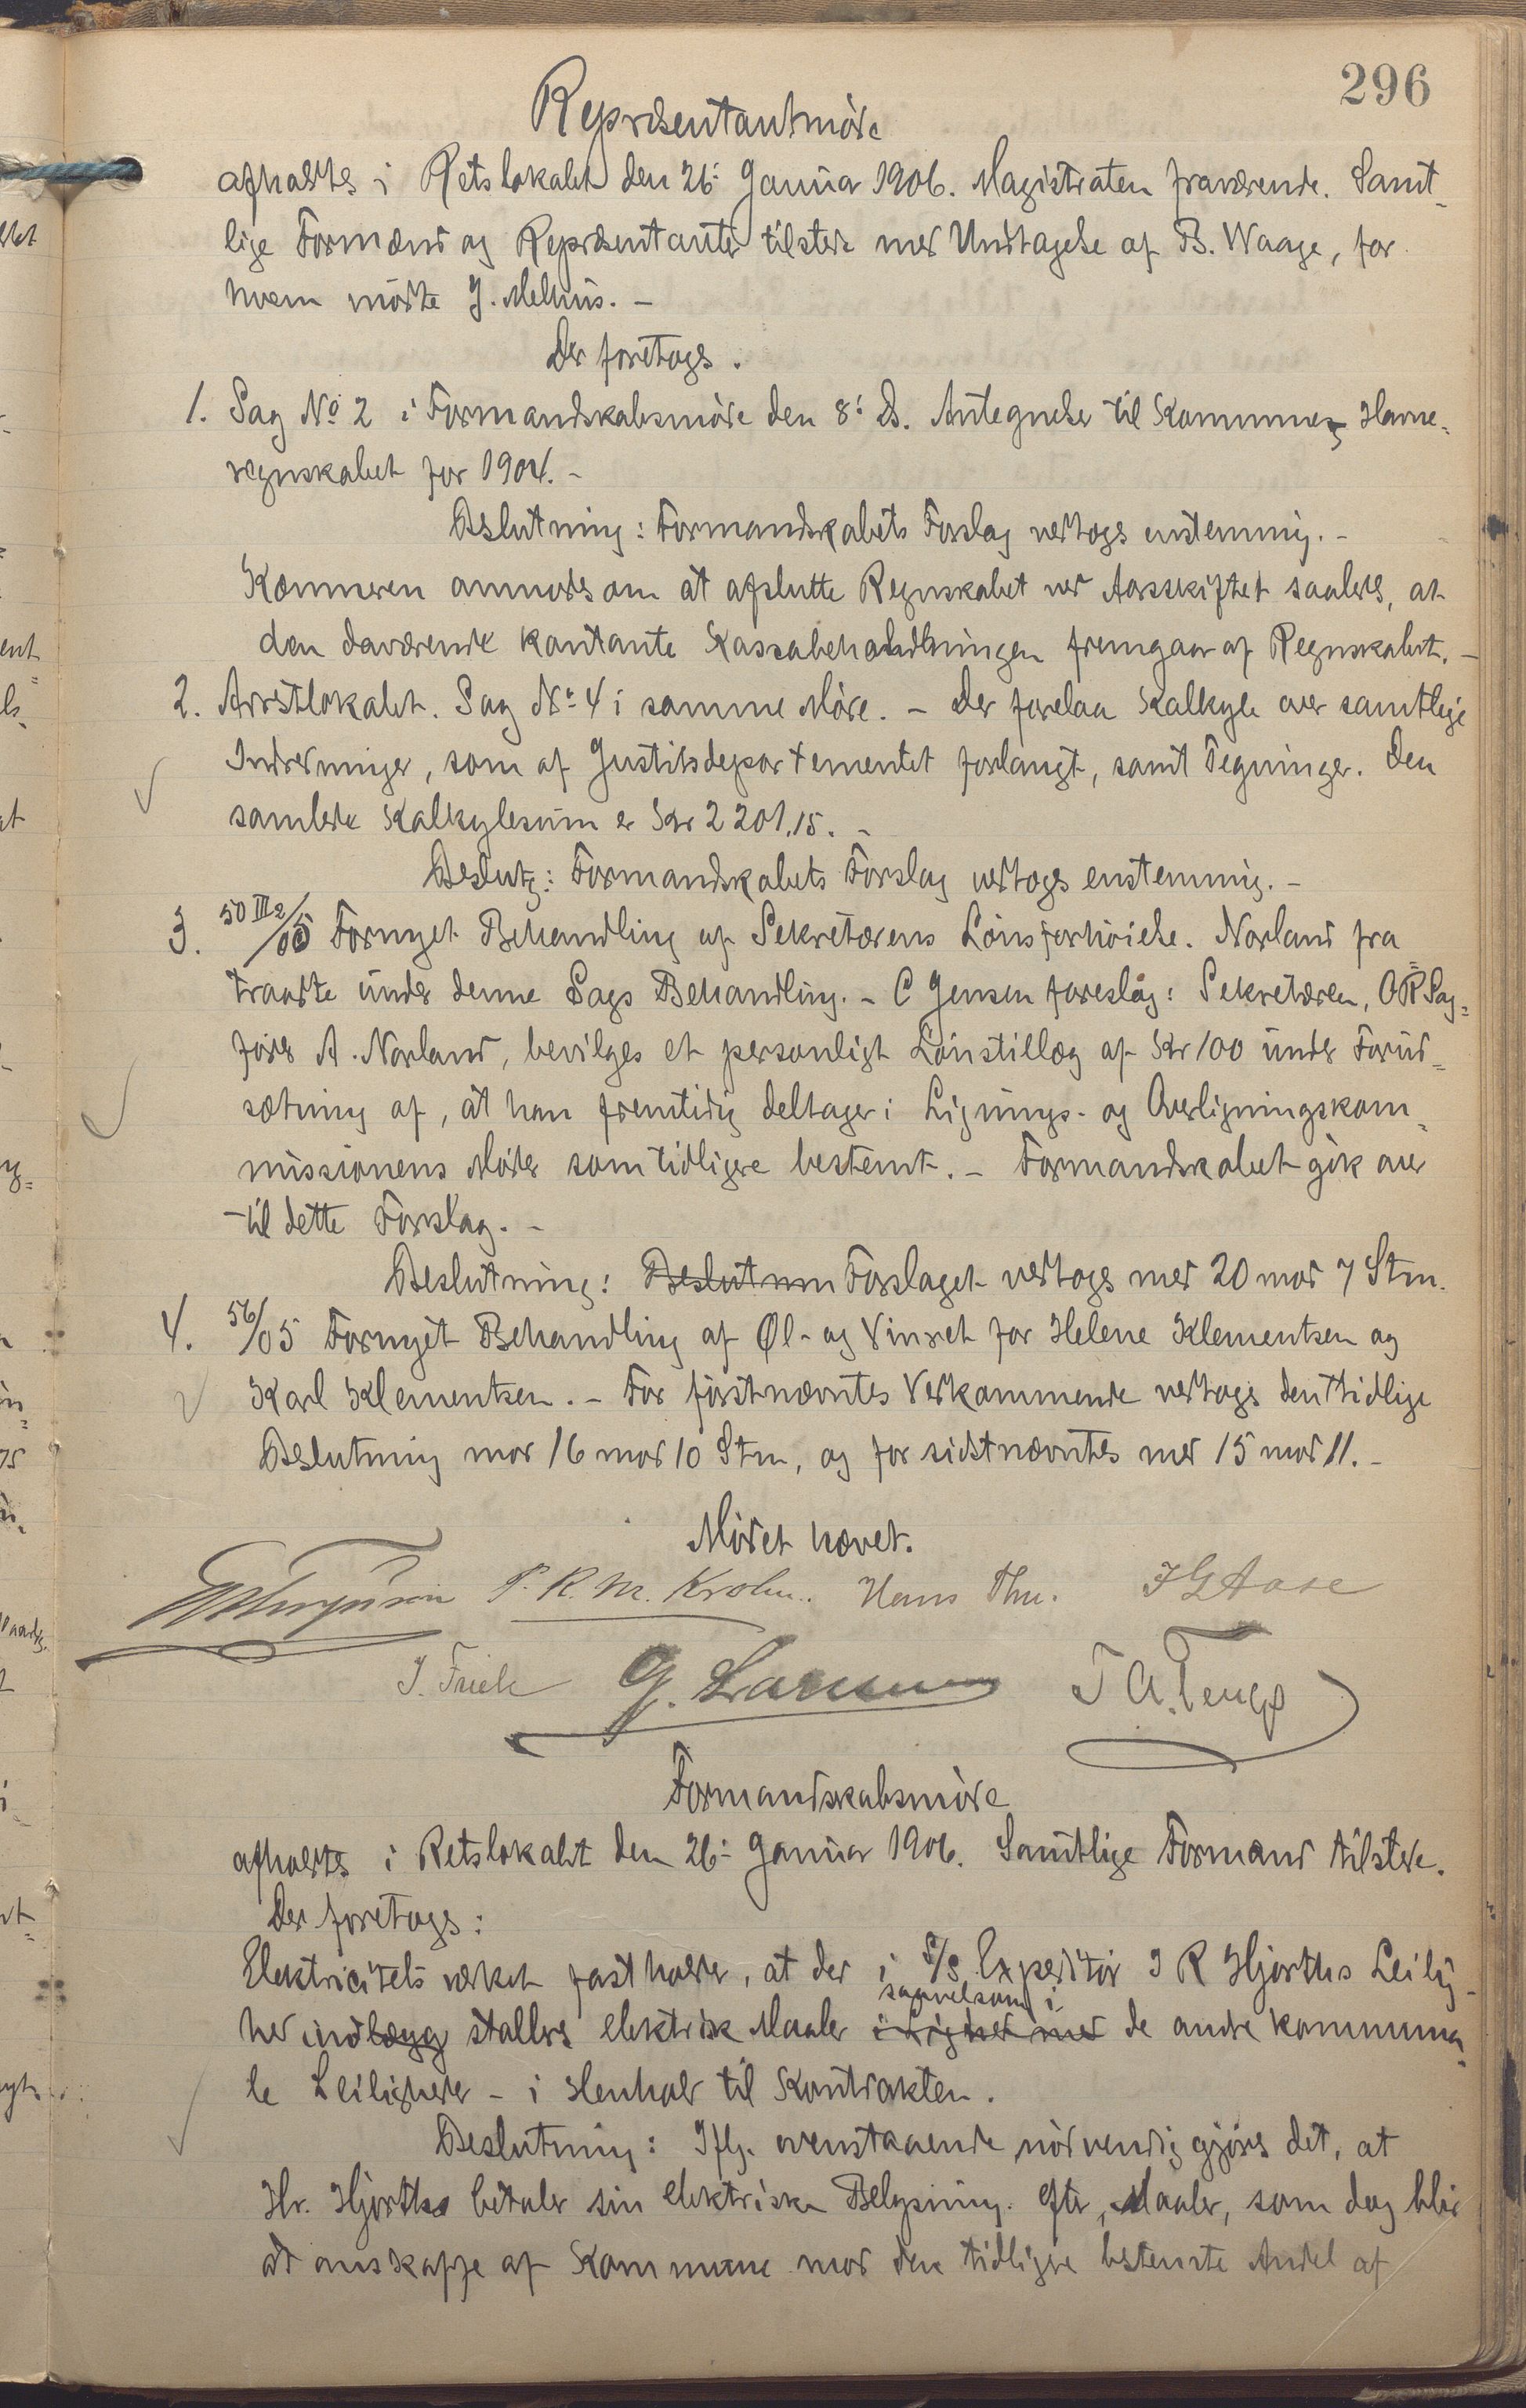 296
Repræsentantmöde
afholdtes i Retslokalet den 26: Januar 1906. Magistraten fraværende. Samt-
lige Formænd og Repræsentanter tilstede med Undtagelse af B. Waage, for
hvem mödte J. Melhus. -
Der foretoges.
1. Sag No 2 i Formandskabsmöde den 8: ds. Antegnelser til Kommunes Havne-
regnskabet for 1904. -
Beslutning: Formandskabets Forslag vedtoges enstemmig. -
Kæmneren anmodes om at afslutte Regnskabet ved Aarsskiftet saaledes, at
den daværende kontante Kassabeholdningen fremgaar af Regnskabet. -
2. Arrestlokalet. Sag No 4 i samme Möde. - Der forelaa Kalkyle over samtlige
Indredninger, som af Justitsdepartementet forlangt, samt Tegninger. Den
samlede Kalkylesum er Kr 2201.15. -
Beslutg: Formandskabets Forslag vedtoges enstemmig. -
3. 50 III 2/05 Fornyet Behandling af Sekretærens Lönsforhöielse. Norland fra
traadte under denne Sags Behandling. - C Jensen foreslog: Sekretæren, ORSag-
förer A. Norland, bevilges et personligt Lönstillæg af Kr 100 under Forud-
sætning af, at han fremtidig deltager i Lignings- og Overligningskom-
missionens Möder som tidligere bestemt. - Formandskabet gik over
til dette Forslag. -
Beslutning: Beslutnin Forslaget vedtoges med 20 mod 7 Stm.
4. 56/05 Fornyet Behandling af Øl- og Vinret for Helene Klementsen og
Karl Klementsen. - For förstnævntes Vedkommende vedtoges den tidlige
Beslutning mod 16 mod 10 Stm, og for sidstnævntes med 15 mod 11. -
Mödet hævet.
P. R. M. Krohn. Hans Thu. J G Aase
J. Friele G. Larsen T A. Tengs
Formandskabsmöde
afholdtes i Retslokalet den 26: Januar 1906. Samtlige Formænd tilstede.
Der foretoges:
Elektricitetsværket fastholder, at der i S/S Expeditör J R Hjorths Leilig-
saavelsom i
hed indlægg stalleres elektrisk Maaler i Lighed med de andre kommuna-
le Leiligheder - i Henhold til Kontrakten.
Beslutning: Iflg. ovenstaaende nödvendig gjöres det, at
Hr. Hjorths betaler sin elektriske Belysning efter Maaler, som dog blir
at anskaffe af Kommune mod den tidligere bestemte Andel af